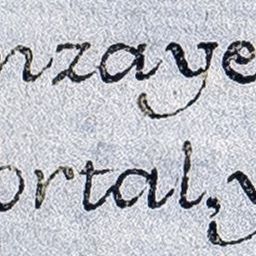 nzaye
ortal, y